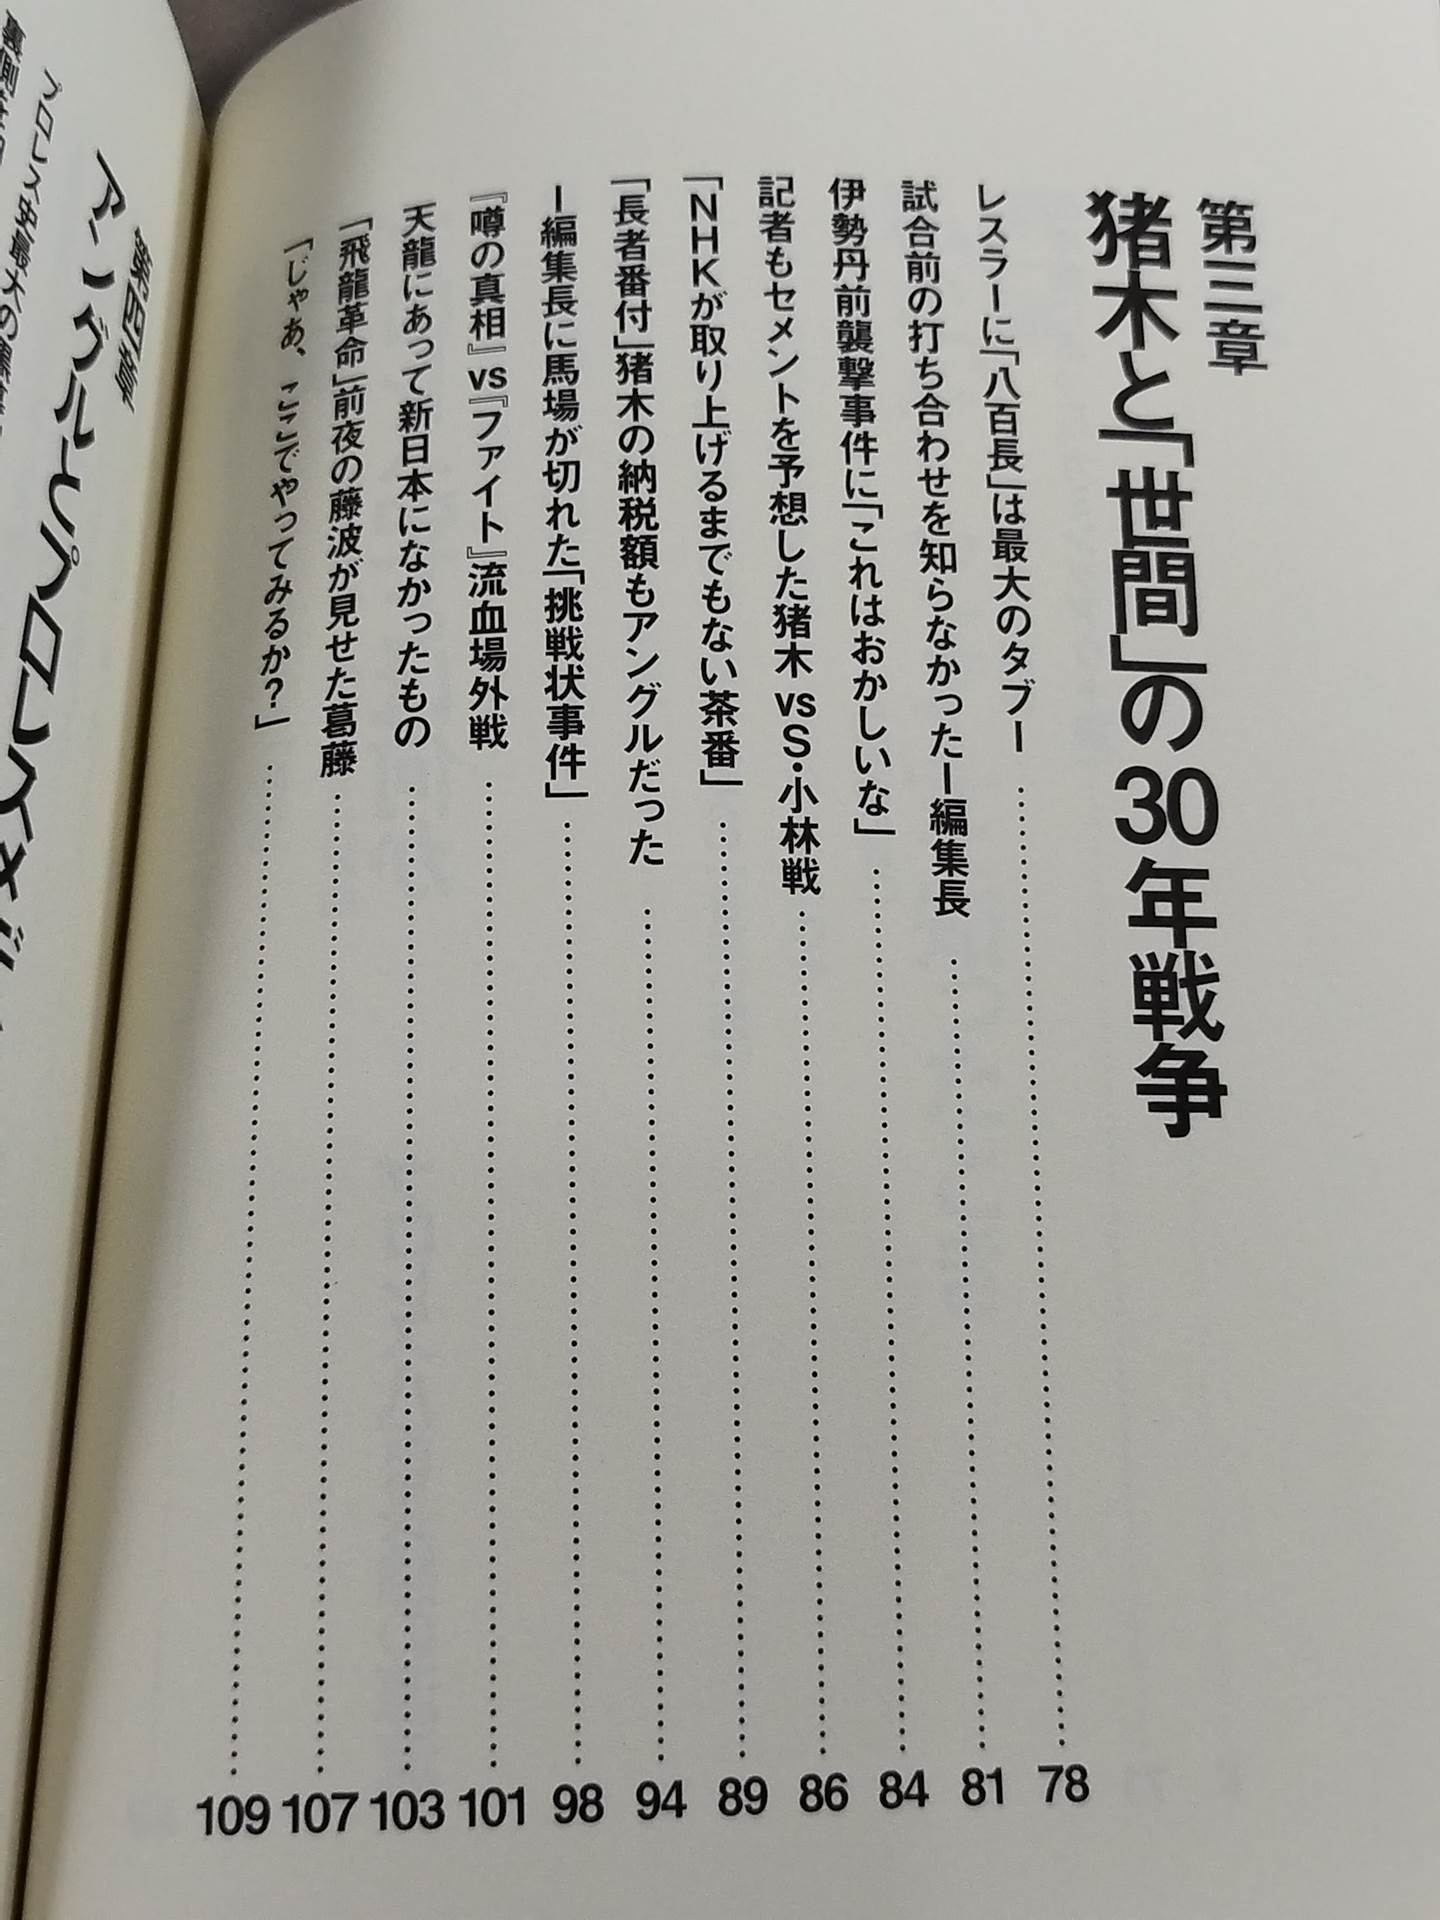 第三章
猪木と「世間」の30年戦争
レスラーに「八百長」は最大のタブー……78
試合前の打ち合わせを知らなかったI編集長……81
伊勢丹前襲撃事件に「これはおかしいな」……84
記者もセメントを予想した猪木vsS・小林戦……86
「NHKが取り上げるまでもない茶番」……89
「長者番付」猪木の納税額もアングルだった……94
I編集長に馬場が切れた「挑戦状事件」……98
『噂の真相』vs『ファイト』流血場外戦……101
天龍にあって新日本になかったもの……103
「飛龍革命」前夜の藤波が見せた葛藤……107
「じゃあ、ここでやってみるか?」……109
第四章
アングルとプロレスメディ
プロレス史最大の